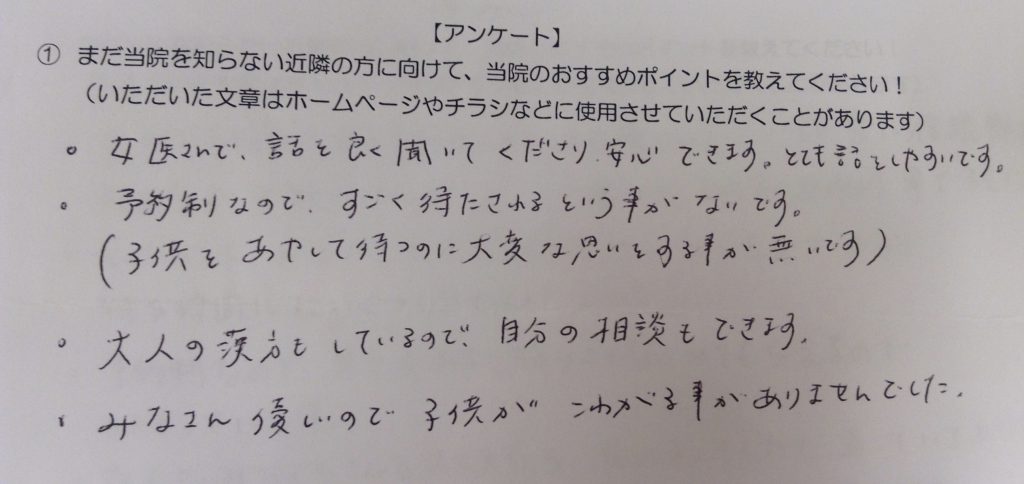 【アンケート】
① まだ当院を知らない近隣の方に向けて、当院のおすすめポイントを教えてください!
(いただいた文章はホームページやチラシなどに使用させていただくことがあります)
。女医さんで、話を良く聞いてくださり、安心できます。とても話をしやすいです。
。予約制なので、すごく待たされるという事がないです。
(子供をあやして待つのに大変な思いをする事が無いです)
。大人の漢方もしているので、自分の相談もできます。
・みなさん優しいので子供がこわがる事がありませんでした。